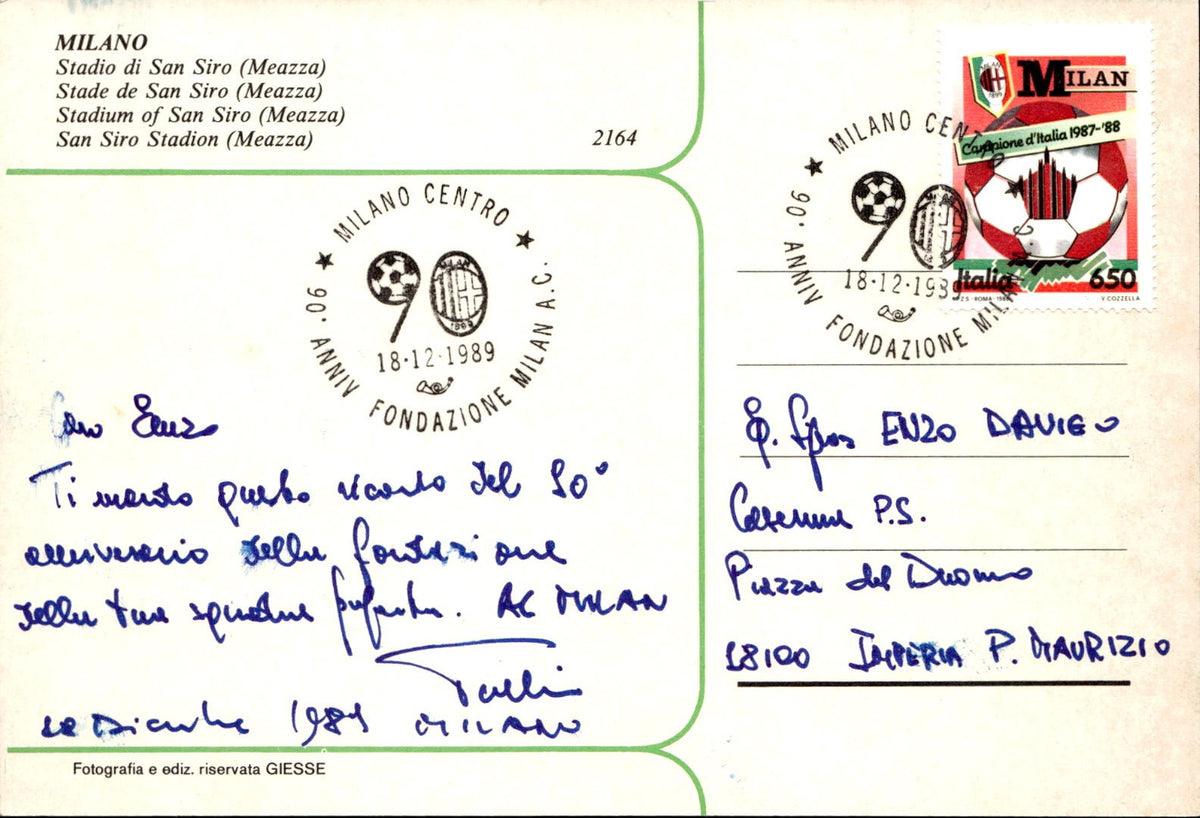 MILANO
Stadio di San Siro (Meazza)
Stade de San Siro (Meazza)
Stadium of San Siro (Meazza)
San Siro Stadion (Meazza)
2164
MILANO CENTRO
90. ANNIV. FONDAZIONE MILAN A.C.
90
MILAN
1899
18·12·1989
Caro Enzo
Ti mando questo ricordo del 90°
anniversario della fondazione
della tua squadra preferita. AC MILAN
18 Dicembre 1989 MILANO
Fotografia e ediz. riservata GIESSE
MILAN
1899
MILAN
Campione d'Italia 1987-'88
Italia 650
I.P.Z.S. - ROMA - 1988
V. COZZELLA
MILANO CENTRO
90. ANNIV. FONDAZIONE MILAN
90
18·12·1989
ENZO DAVIGO
Caserma P.S.
Piazza del Duomo
18100 IMPERIA P. MAURIZIO